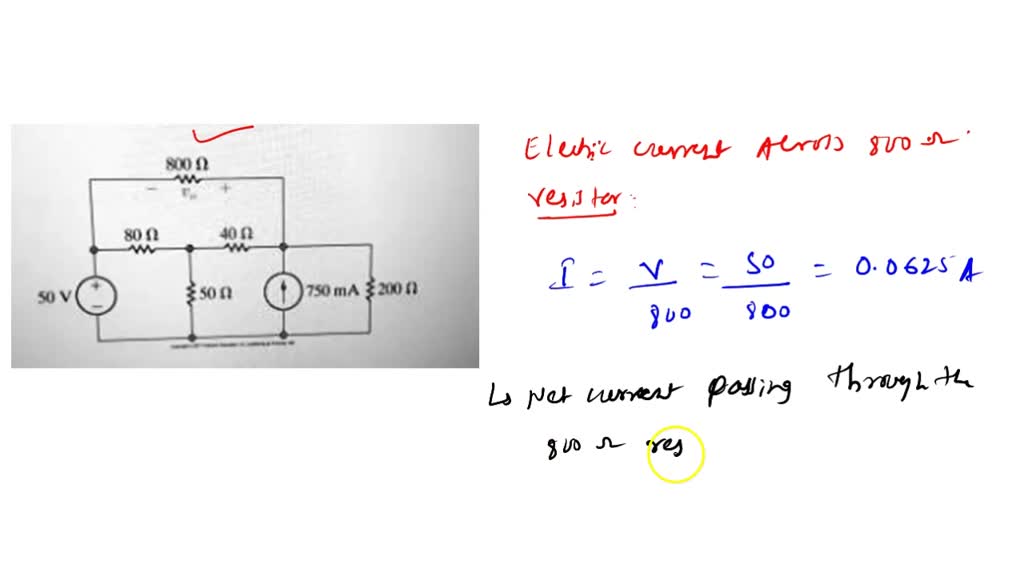 800 Ω
− +
80 Ω 40 Ω
50 V + − 50 Ω 750 mA 200 Ω
Electric current Across 800 Ω
resistor:
I = V/800 = 50/800 = 0.0625 A
↳ Net current passing through the
800 Ω res